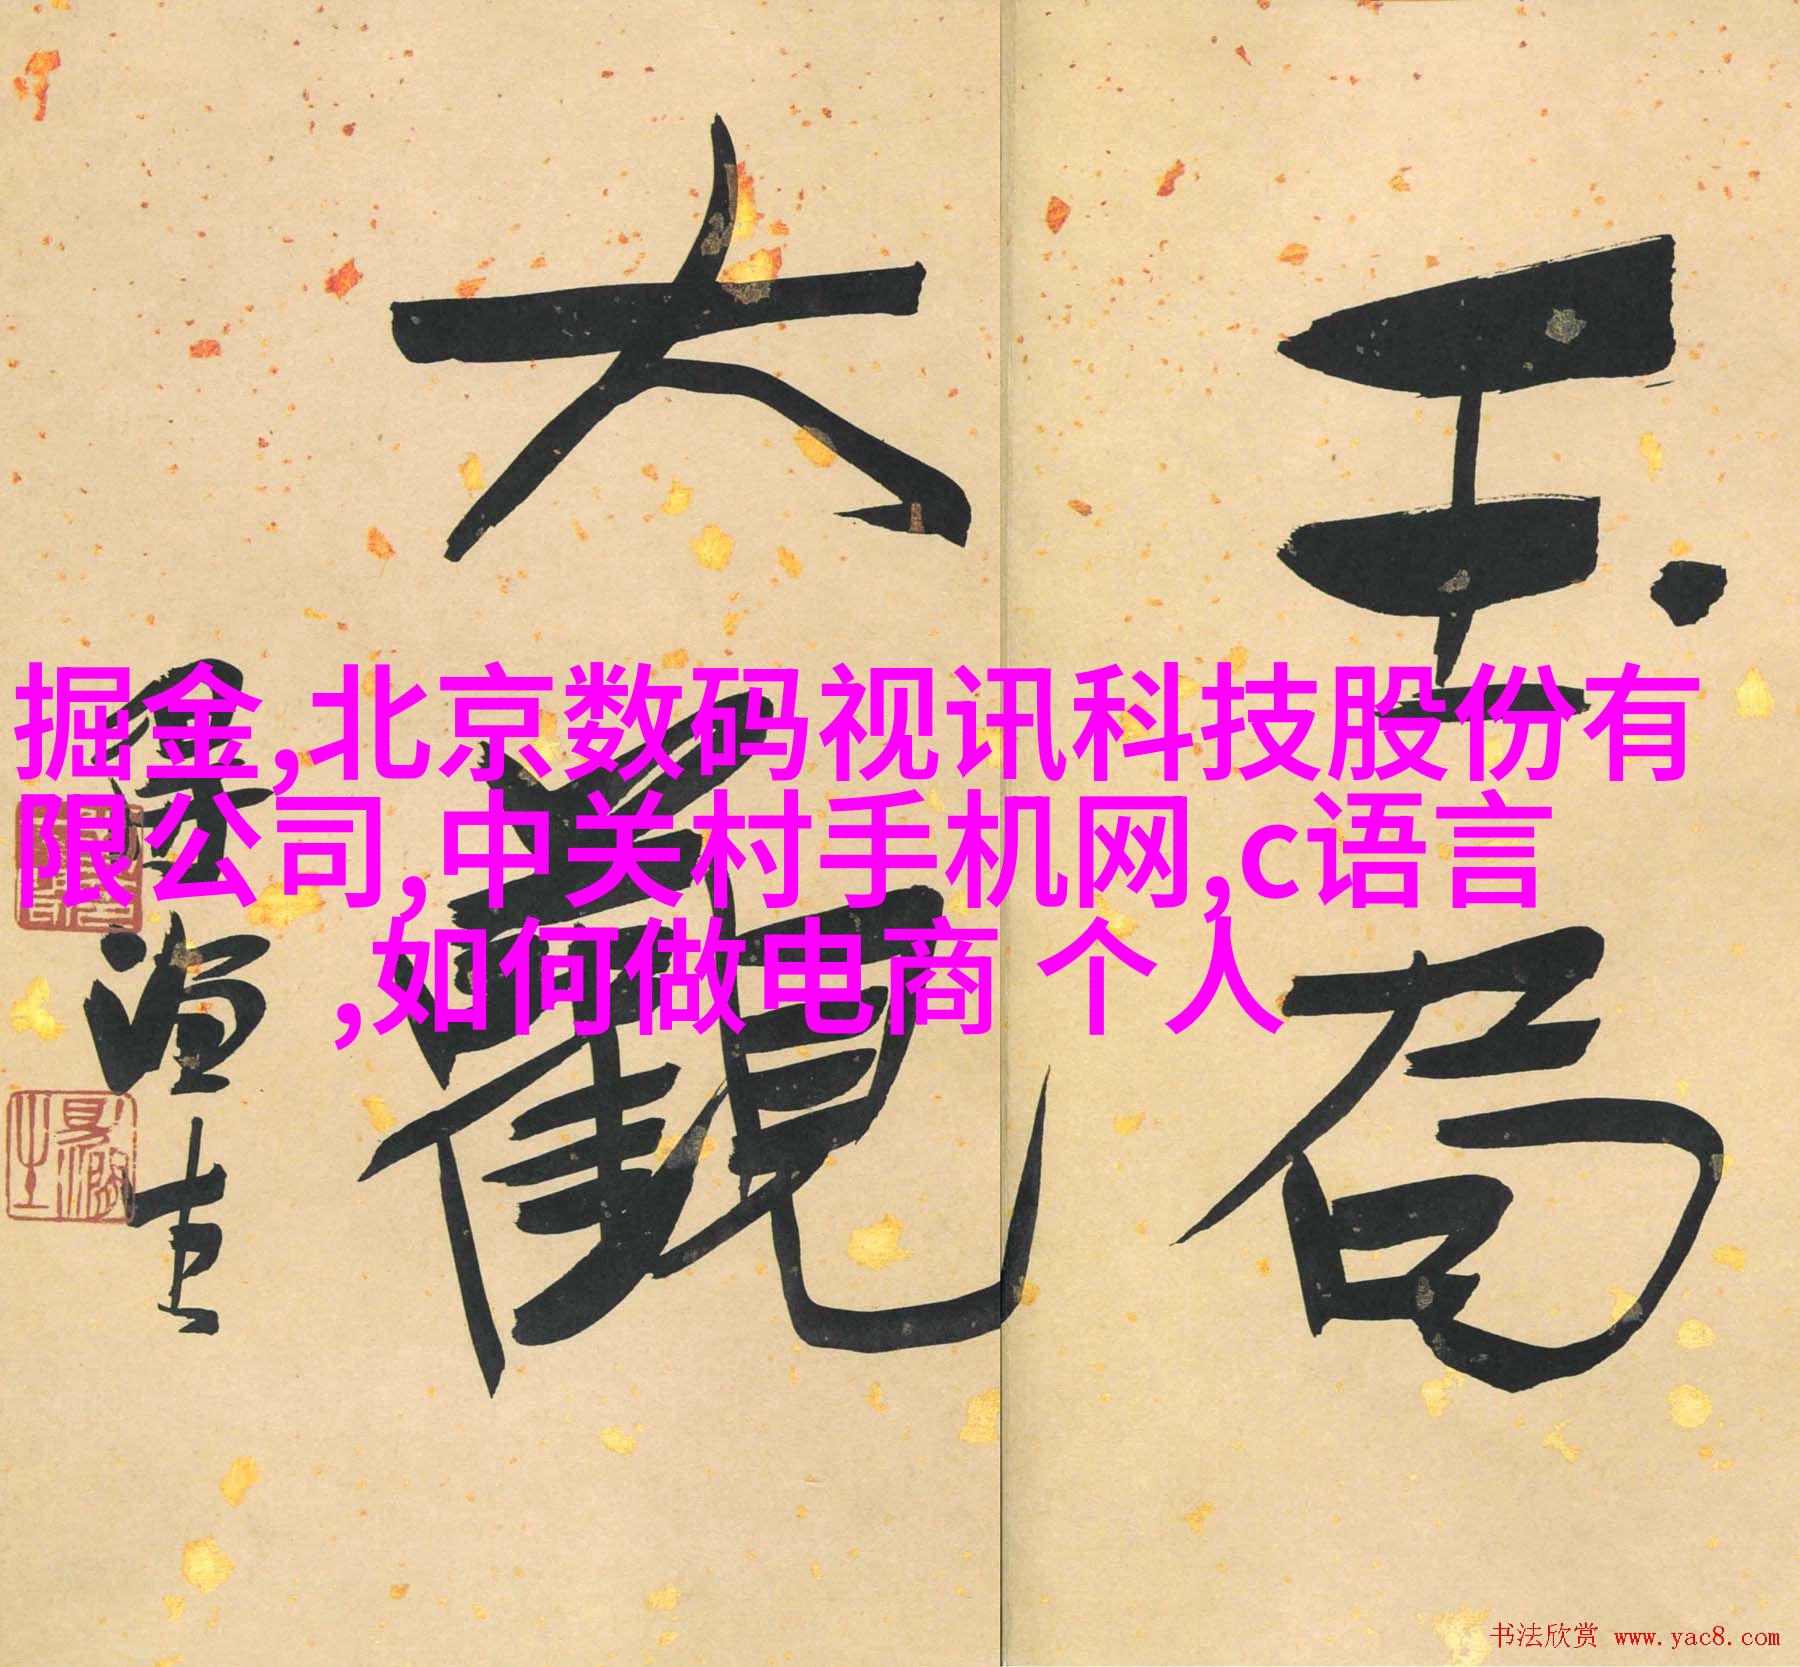 掘金,北京数码视讯科技股份有
限公司,中关村手机网,c语言
,如何做电商 个人
玉局
大觀
書法欣赏 www.yac8.com